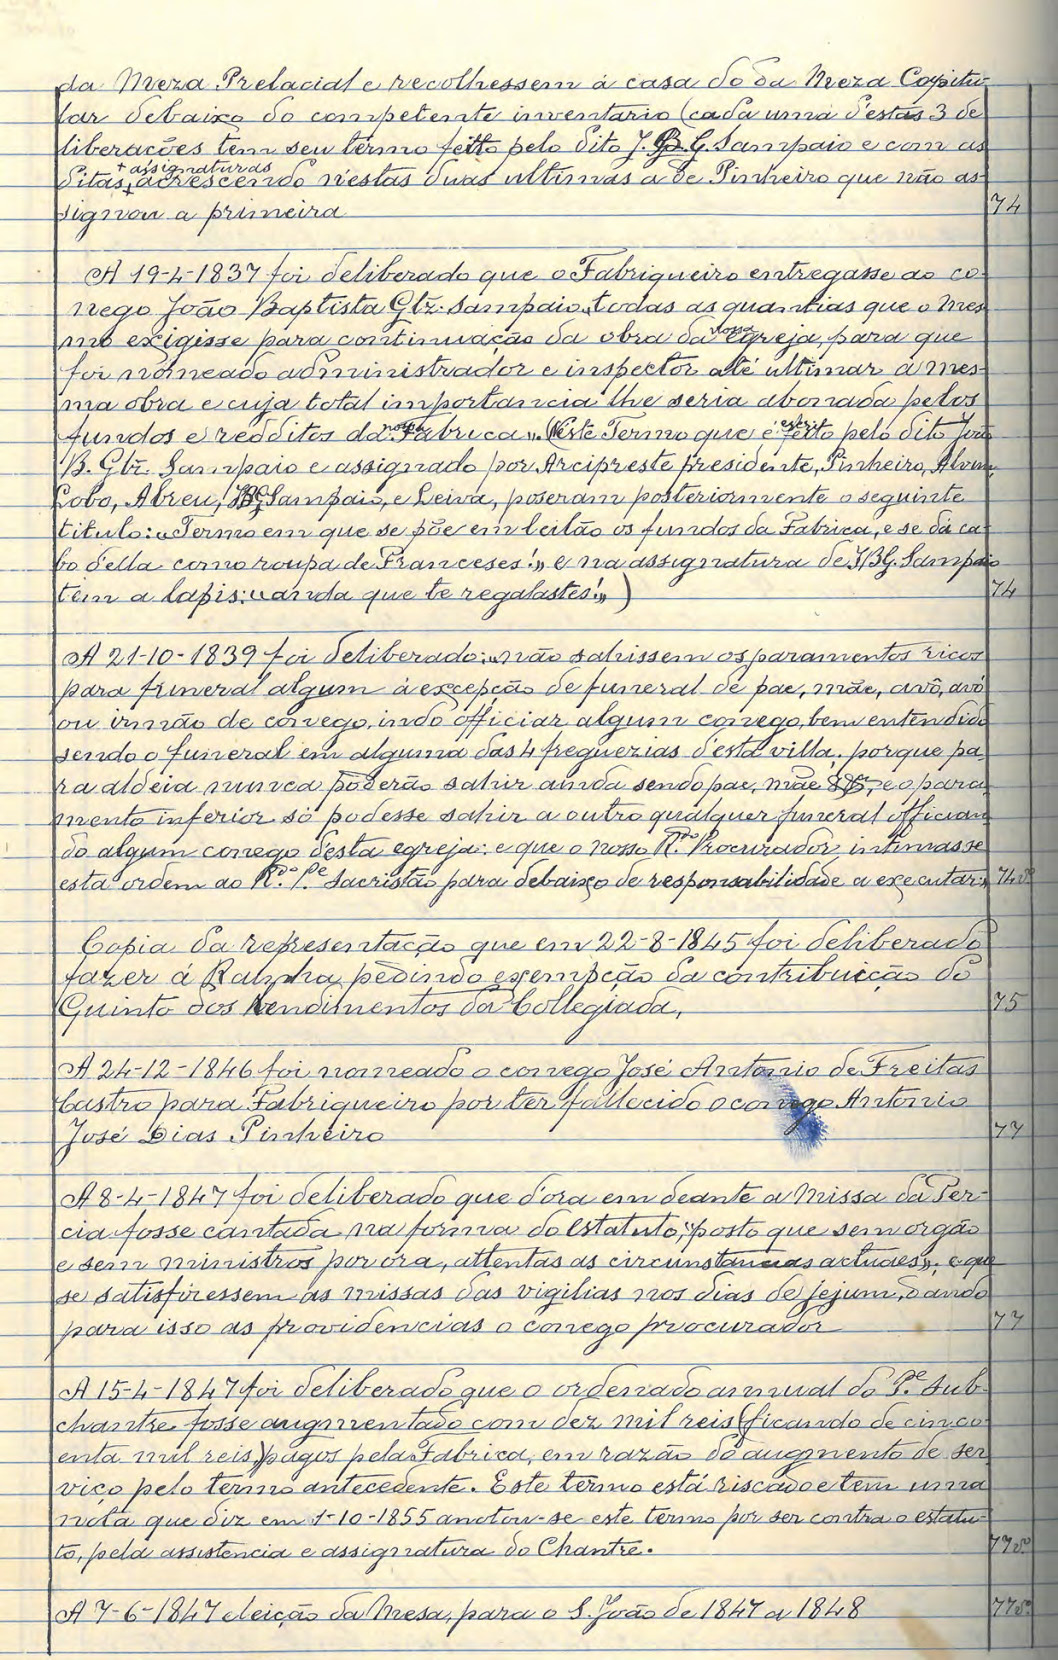 da Meza Prelacial e recolhessem á casa do da Meza Capitu-
lar debaixo do competente inventario (cada uma d'estas 3 de
liberações tem seu termo feito pelo dito J. B. G. Sampaio e com as
+ assignaturas
ditas + acrescendo n'estas duas ultimas a de Pinheiro que não as-
signou a primeira
74
A 19-4-1837 foi deliberado que o Fabriqueiro entregasse ao co-
nego João Baptista Glz. Sampaio, "todas as quantias que o mes-
mo exigisse para continuação da obra da nossa egreja, para que
foi nomeado administrador e inspector até ultimar a mes-
ma obra e cuja total importancia lhe seria abonada pelos
fundos e redditos da nossa Fabrica". (Este Termo que é escrito feito pelo dito João
B. Glz. Sampaio e assignado por Arcipreste presidente, Pinheiro, Alvim,
Lobo, Abreu, JBG Sampaio, e Leiva, poseram posteriormente o seguinte
titulo: "Termo em que se põe em leilão os fundos da Fabrica, e se dá ca-
bo d'ella como roupa de Franceses!" e na assignatura de JBG. Sampaio
tem a lapis: "anda que te regalastes!")
74
A 21-10-1839 foi deliberado: "não sahissem os paramentos ricos
para funeral algum á excepção de funeral de pae, mãe, avô, avó
ou irmão de conego, indo officiar algum conego, bem entendido
sendo o funeral em alguma das 4 freguezias d'esta villa, porque pa-
ra aldeia nunca poderão sahir ainda sendo pae, mãe &, e o para-
mento inferior só podesse sahir a outro qualquer funeral officiam
do algum conego d'esta egreja: e que o nosso R.do Procurador intimasse
esta ordem ao R.do P.e Sacristão para debaixo de responsabilidade a executar"
74v.º
Copia da representação que em 22-8-1845 foi deliberado
fazer á Rainha pedindo exempção da contribuição do
Quinto dos rendimentos da Collegiada,
75
A 24-12-1846 foi nomeado o conego José Antonio de Freitas
Castro para Fabriqueiro por ter fallecido o conego Antonio
José Dias Pinheiro
77
A 8-4-1847 foi deliberado que d'ora em deante a Missa da Ter-
cia fosse cantada na forma do Estatuto, "posto que sem orgão
e sem ministros por ora, attentas as circunstancias actuaes", e que
se satisfizessem as missas das vigilias nos dias de jejum, dando
para isso as providencias o conego procurador
77
A 15-4-1847 foi deliberado que o ordenado annual do P.e Sub-
chantre fosse augmentado com dez mil reis (ficando de cinco-
enta mil reis) pagos pela Fabrica, em razão do augmento de ser-
viço pelo termo antecedente. Este termo está riscado e tem uma
nota que diz em 1-10-1855 anotou-se este termo por ser contra o estatu-
to, pela assistencia e assignatura do Chantre.
77v.º
A 7-6-1847 eleição da Mesa, para o S. João de 1847 a 1848
77v.º